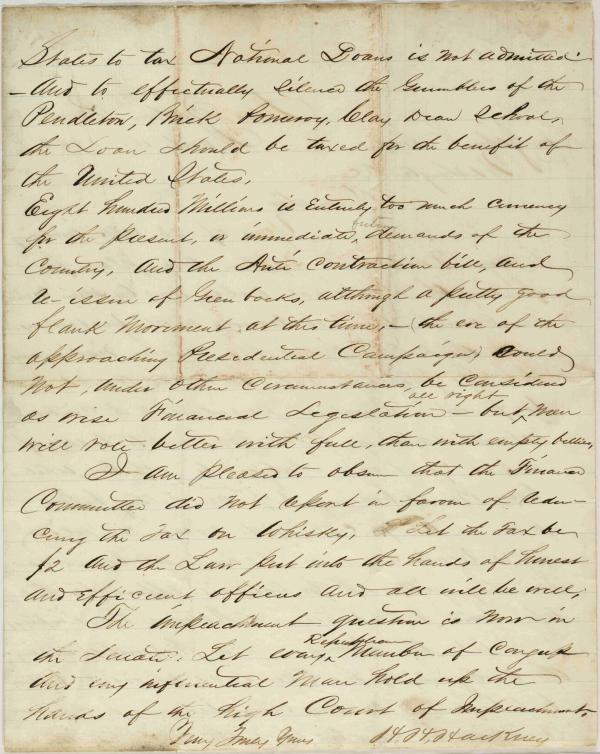 States to tax National Loans is not admitted.
- And to effectually silence the Grumblers of the
Pendleton, Brick Pomeroy, Clay Dean School,
the Loan should be taxed for the benefit of
the United States.
Eight hundred Millions is Entirely too much currency
for the present, or immediate, demands of the
Country, And the Anti Contraction bill, and
re-issue of Greenbacks, although a pretty good
flank movement at this time, - (the eve of the
approaching Presedential Campaign) could
not, under other circumstances, be considered
all right
as wise Financial Legislation - but, Men
will vote better with full, than with empty bellies,
I am pleased to observe that the Finance
Committee did not report in favour of redu-
cing the Tax on Whisky. Let the Tax be
$2 And the Law put into the hands of honest
and Efficient officers and all will be well.
The impeachment question is now in
Republican
the Senate. Let every Member of Congress
and every influential man hold up the
hands of the High Court of Impeachment.
Very Truly Yours H. H. Hackney